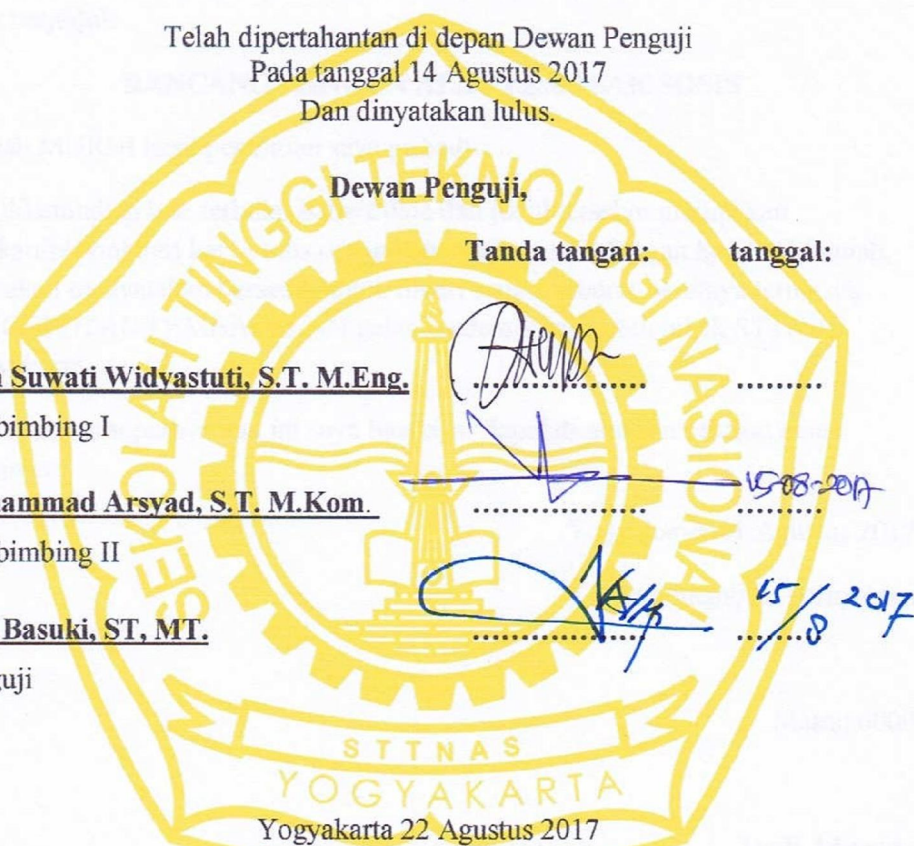 Telah dipertahantan di depan Dewan Penguji
Pada tanggal 14 Agustus 2017
Dan dinyatakan lulus.
Dewan Penguji,
Tanda tangan: tanggal:
Suwati Widyastuti, S.T. M.Eng. .................. .........
bimbing I
ammad Arsyad, S.T. M.Kom. .................. ......... 15-08-2017
bimbing II
Basuki, ST, MT. .................. ......... 15/8 2017
guji
SEKOLAH TINGGI TEKNOLOGI NASIONAL
STTNAS
YOGYAKARTA
Yogyakarta 22 Agustus 2017